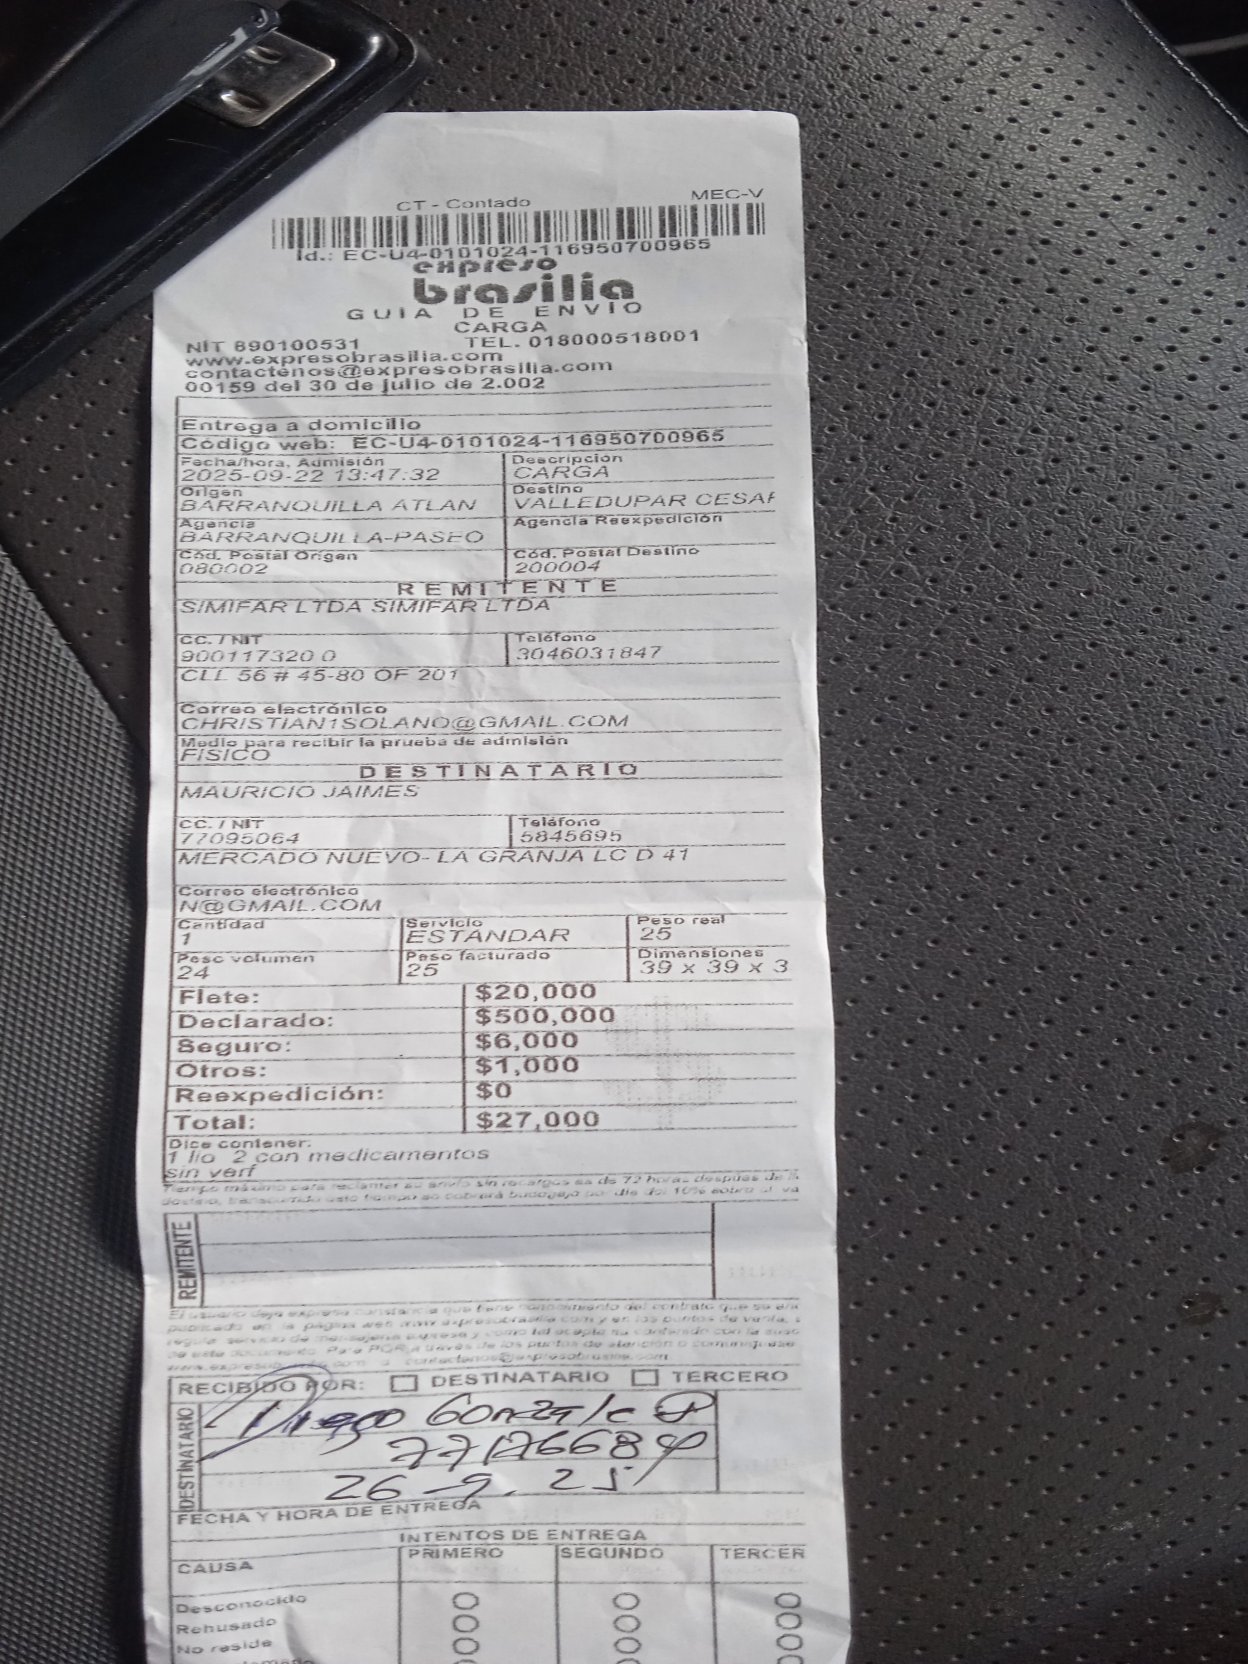 CT - Contado MEC-V
Id.: EC-U4-0101024-116950700965
expreso
brasilia
GUIA DE ENVIO
CARGA
NIT 890100531 TEL. 018000518001
www.expresobrasilia.com
contactenos@expresobrasilia.com
00159 del 30 de julio de 2.002
Entrega a domicilio
Código web: EC-U4-0101024-116950700965
Fecha/hora, Admisión Descripción
2025-09-22 13:47:32 CARGA
Origen Destino
BARRANQUILLA ATLAN VALLEDUPAR CESAR
Agencia Agencia Reexpedición
BARRANQUILLA-PASEO
Cód. Postal Origen Cód. Postal Destino
080002 200004
REMITENTE
SIMIFAR LTDA SIMIFAR LTDA
CC. / NIT Teléfono
900117320 0 3046031847
CLL 56 # 45-80 OF 201
Correo electrónico
CHRISTIAN1SOLANO@GMAIL.COM
Medio para recibir la prueba de admisión
FISICO
DESTINATARIO
MAURICIO JAIMES
CC. / NIT Teléfono
77095064 5845695
MERCADO NUEVO- LA GRANJA LC D 41
Correo electrónico
N@GMAIL.COM
Cantidad Servicio Peso real
1 ESTANDAR 25
Peso volumen Peso facturado Dimensiones
24 25 39 x 39 x 3
Flete: $20,000
Declarado: $500,000
Seguro: $6,000
Otros: $1,000
Reexpedición: $0
Total: $27,000
Dice contener:
1 lio 2 con medicamentos
sin verf
Tiempo máximo para reclamar su envío sin recargos es de 72 horas después de
destino, transcurrido este tiempo se cobrará bodegaje por día del 10% sobre el va
REMITENTE
El usuario deja expresa constancia que tiene conocimiento del contrato que se en
publicado en la página web www.expresobrasilia.com y en los puntos de venta,
regula servicio de mensajería expresa y como tal acepta su contenido con la
de este documento. Para PQR a través de los puntos de atención o comuníquese
contactenos@expresobrasilia.com
RECIBIDO POR: DESTINATARIO TERCERO
DESTINATARIO
Diego Gonzale
26-9.25
FECHA Y HORA DE ENTREGA
INTENTOS DE ENTREGA
CAUSA PRIMERO SEGUNDO TERCER
Desconocido
Rehusado
No reside